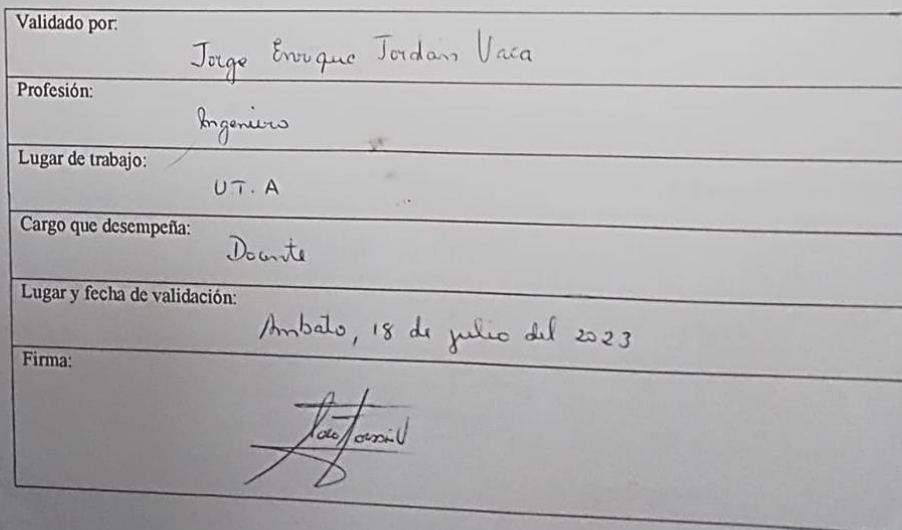 Validado por:
Jorge Enrique Jordan Vaca
Profesión:
Ingeniero
Lugar de trabajo:
U.T.A
Cargo que desempeña:
Docente
Lugar y fecha de validación:
Ambato, 18 de julio del 2023
Firma: